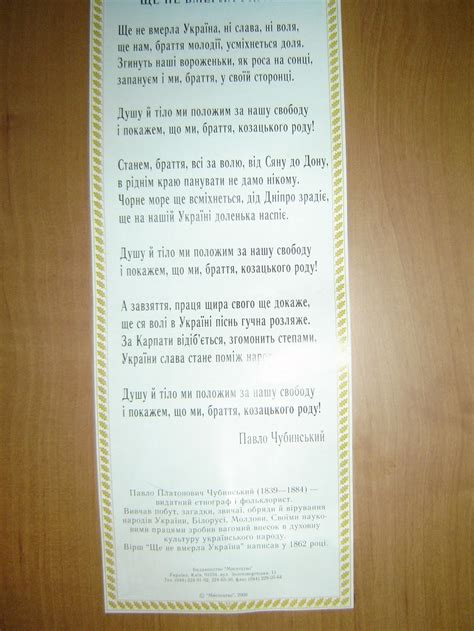 ЩЕ НЕ ВМЕРЛА
Ще не вмерла Україна, ні слава, ні воля,
ще нам, браття молодії, усміхнеться доля.
Згинуть наші вороженьки, як роса на сонці,
запануєм і ми, браття, у своїй сторонці.
Душу й тіло ми положим за нашу свободу
і покажем, що ми, браття, козацького роду!
Станем, браття, всі за волю, від Сяну до Дону,
в ріднім краю панувати не дамо нікому.
Чорне море ще всміхнеться, дід Дніпро зрадіє,
ще на нашій Україні доленька наспіє.
Душу й тіло ми положим за нашу свободу
і покажем, що ми, браття, козацького роду!
А завзяття, праця щира свого ще докаже,
ще ся волі в Україні піснь гучна розляже.
За Карпати відіб'ється, згомонить степами.
України слава стане поміж
Душу й тіло ми положим за нашу свободу
і покажем, що ми, браття, козацького роду!
Павло Чубинський
Павло Платонович Чубинський (1839—1884) —
видатний етнограф і фольклорист.
Вивчав побут, загадки, звичаї, обряди й вірування
народів України, Білорусі, Молдови. Своїми науко-
вими працями зробив вагомий внесок в духовну
культуру українського народу.
Вірш "Ще не вмерла Україна" написав у 1862 році.
Видавництво "Мистецтво"
Україна, Київ,
© "Мистецтво",